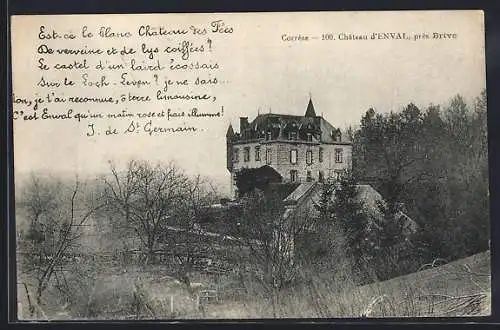 Est-ce le blanc Château des Fées
De verveine et de lys coiffées?
Le castel d'un laird écossais
Sur le Loch-Leven? je ne sais...
Non, je t'ai reconnue, ô terre limousine,
C'est Enval qu'un matin rose et frais illumine!
J. de St Germain.
Corrèze — 100. Château d'ENVAL, près Brive